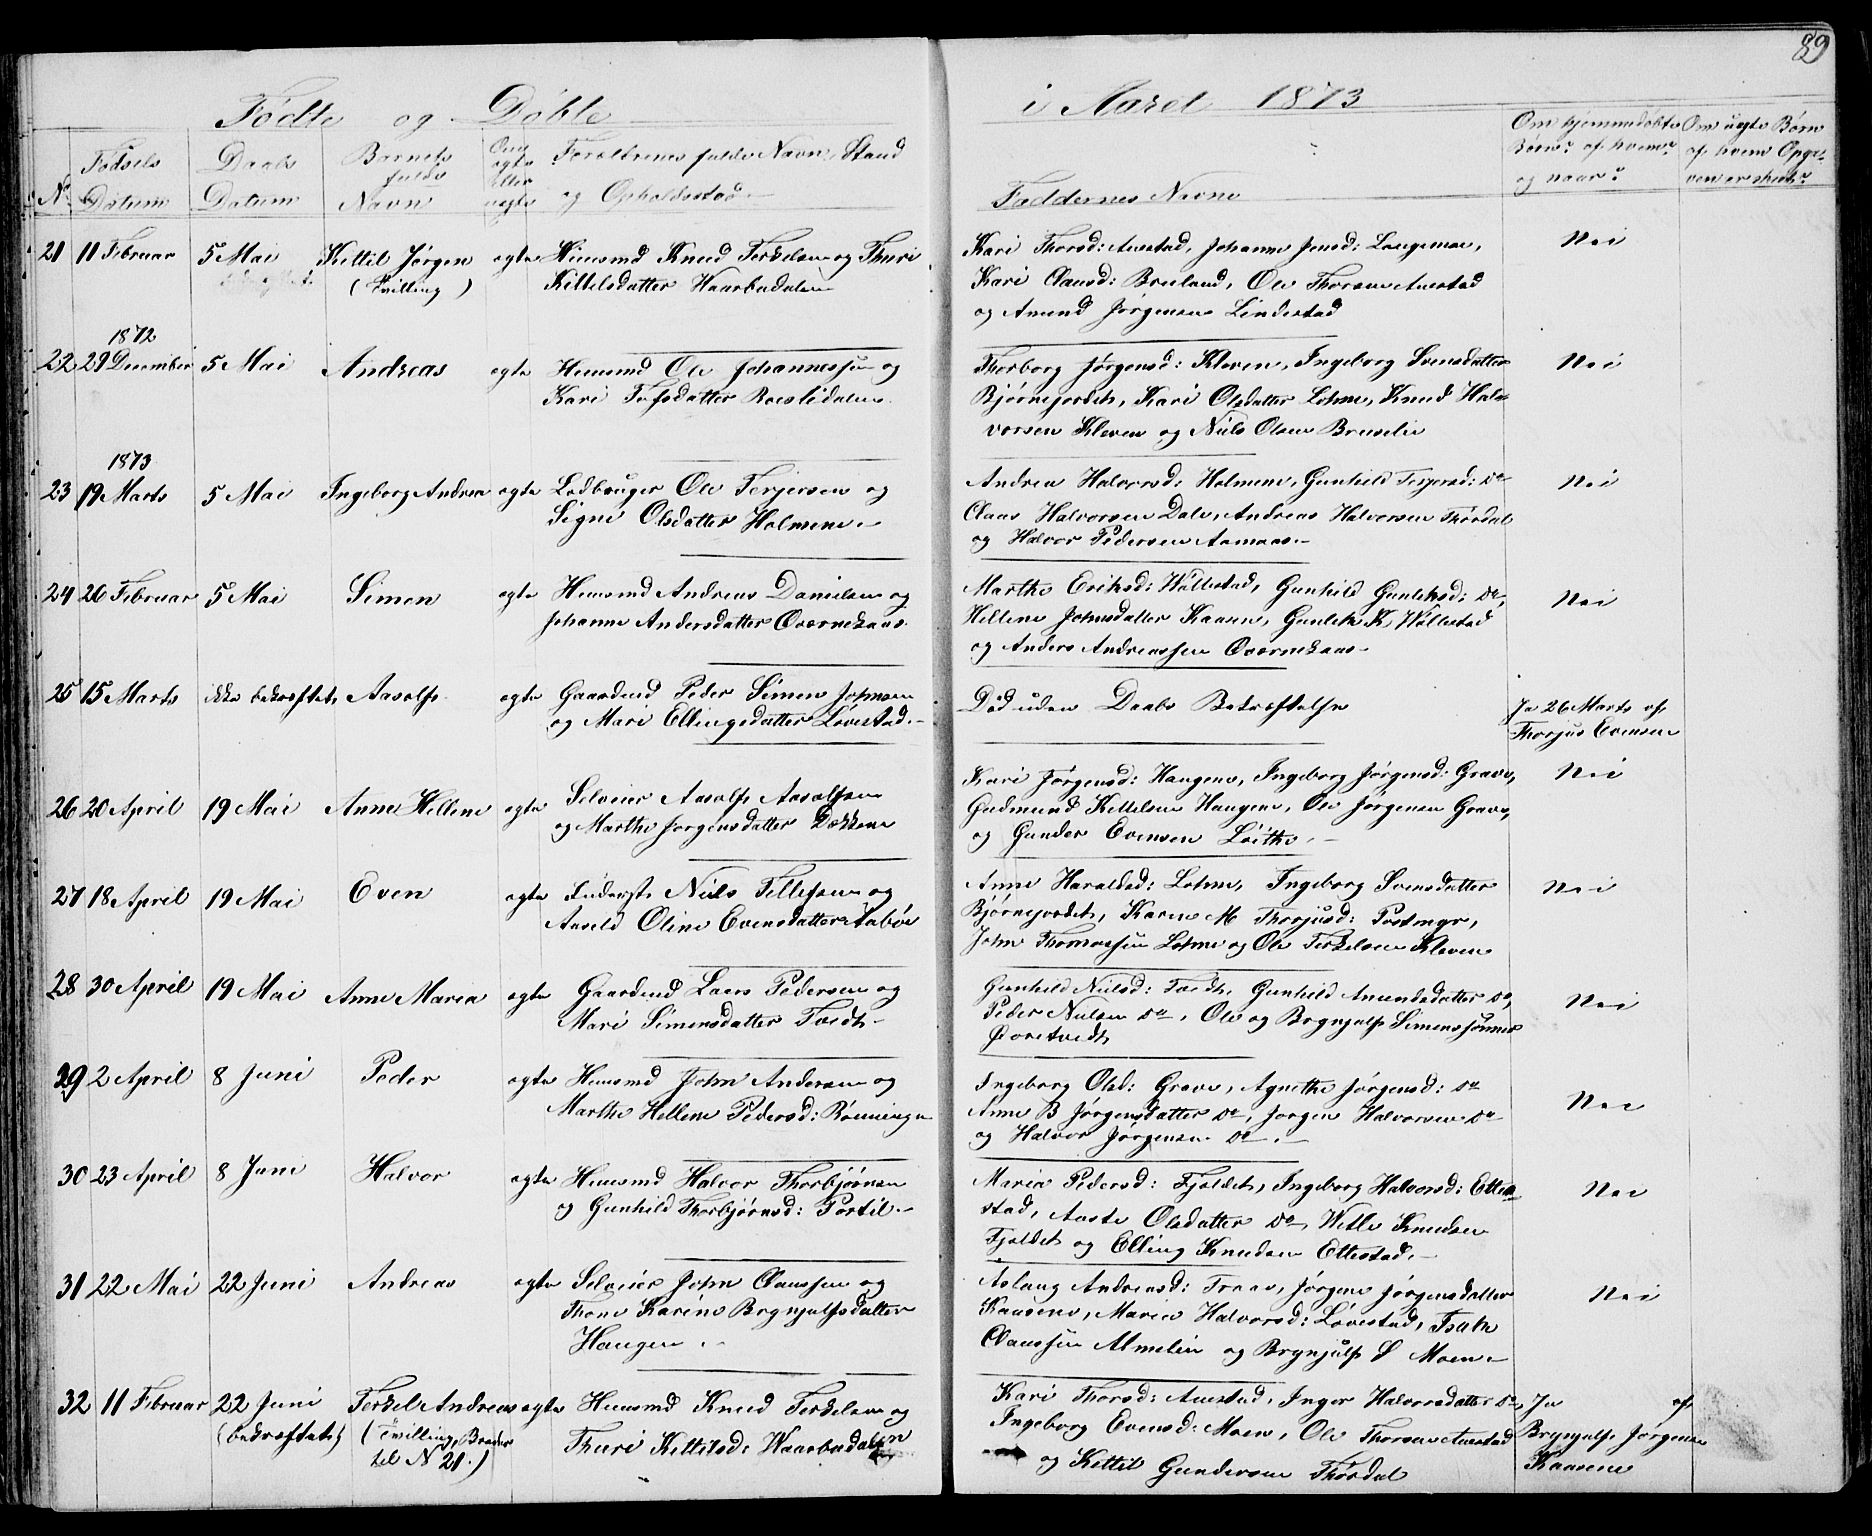 89
Födte og Döbte i Aaret 1873
No. Födsels Datum
Daabs Datum
Barnets fulde Navn
Om ægte eller uægte
Forældrenes fulde Navn, Stand
og Opholdssted
Faddernes Navne
Om hjemmedöbte
Börn: af hvem
og naar
Om uægte Börn
af hvem Opga-
ven er skeet
21 11 Februar 5 Mai Kittil Jörgen ægte Huusmd Knud Terkelsen og Thuri
(Tvilling)
Kittelsdatter Haarbudalen
Kari Thorsd: Auestad, Johanne Jensd: Langemoe,
Kari Clausd: Breiland, Ole Thorsen Auestad
og Amund Jörgensen Lindestad
Nei
1872
22 29 December 5 Mai Andreas ægte Huusmd Ole Johannessen og
Kari Tofsdatter Roeslidalen
Thorborg Jörgensd: Kleven, Ingeborg Svensdatter
Björnejordet, Kari Olsdatter Lohne, Knud Hal-
vorsen Kleven og Niels Olsen Bruselie
Nei
1873
23 19 Marts 5 Mai Ingeborg Andrea ægte Lodbruger Ole Terjersen og
Signe Olsdatter Holmene
Andrea Halvorsd: Holmene, Gunhild Terjersd: Do
Claus Halvorsen Dale, Andreas Halvorsen Thördal
og Halvor Pedersen Aamaas
Nei
24 26 Februar 5 Mai Simen ægte Huusmd Andreas Danielsen og
Johanne Andersdatter Qværnekaas
Marthe Eriksd: Wöllestad, Gunhild Gunleksd: Do,
Hellene Johnsdatter Kaasen, Gunlek K. Wöllestad
og Anders Andreassen Qværnekaas
Nei
25 15 Marts ikke bekræftet Aasolf ægte Gaardmd Peder Simen Jopsen
og Mari Ellingsdatter Lövestad
Död uden Daabs Bekræftelse
Ja 26 Marts af
Thorjus Evensen
26 20 April 19 Mai Anne Hellene ægte Selveier Aasolf Aasolfsen
og Marthe Jorgensdatter Bakken
Kari Jörgensd: Haugene, Ingeborg Jörgensd: Grave,
Gudmund Kittelsen Haugene, Ole Jorgensen Grave,
og Gunder Evensen Löithe
Nei
27 18 April 19 Mai Even ægte Inderst Niels Tellefsen og
Aaseld Oline Evensdatter Aabö
Anne Haraldsd: Lohne, Ingeborg Svensdatter
Björnejordet, Karen M Thorjusd: Postmyr,
John Thomassen Lohne og Ole Terkelsen Kleven
Nei
28 30 April 19 Mai Anne Maria ægte Gaardmd Laers Pedersen og
Mari Simensdatter Tvedt
Gunhild Nielsd: Tvedt, Gunhild Amundsdatter Do,
Peder Nielsen Do, Ole og Brynjulf Simenssönner
Qvretvedt
Nei
29 2 April 8 Juni Peder ægte Huusmd John Andersen og
Marthe Hellene Pedersd: Rönningen
Ingeborg Olsd: Grave, Agnethe Jörgensd: Do
Anne B Jörgensdatter Do, Jorgen Halvorsen Do
og Halvor Jörgensen Do
Nei
30 23 April 8 Juni Halvor ægte Huusmd Halvor Thorbjörnsen
og Gunhild Thorbjörnsd: Portil
Maria Pedersd: Fjeldet, Ingeborg Halvorsd: Ette-
stad, Aaste Olsdatter Do, Wetle Knudsen
Fjeldet og Elling Knudsen Ettestad
Nei
31 22 Mai 22 Juni Andreas ægte Selveier John Claussen og
Thone Karine Brynjulfsdatter
Haugen
Aslaug Andreasd: Traae, Jörgene Jörgensdatter
Kaasene, Maria Halvorsd: Lövestad, Isak
Claussen Almelien og Brynjulf S Moen
Nei
32 11 Februar 22 Juni Terkel Andreas ægte Huusmd Knud Terkelsen og
(bekræftet) (Tvilling, Broder
til N 21.)
Thuri Kittilsd: Haarbudalen
Kari Thorsd: Auestad, Inger Halvorsdatter Do,
Ingeborg Evensd: Moen, Ole Thorsen Auestad
og Kittil Gundersen Thördal
Ja af
Brynjulf Jörgensen
Kaasene